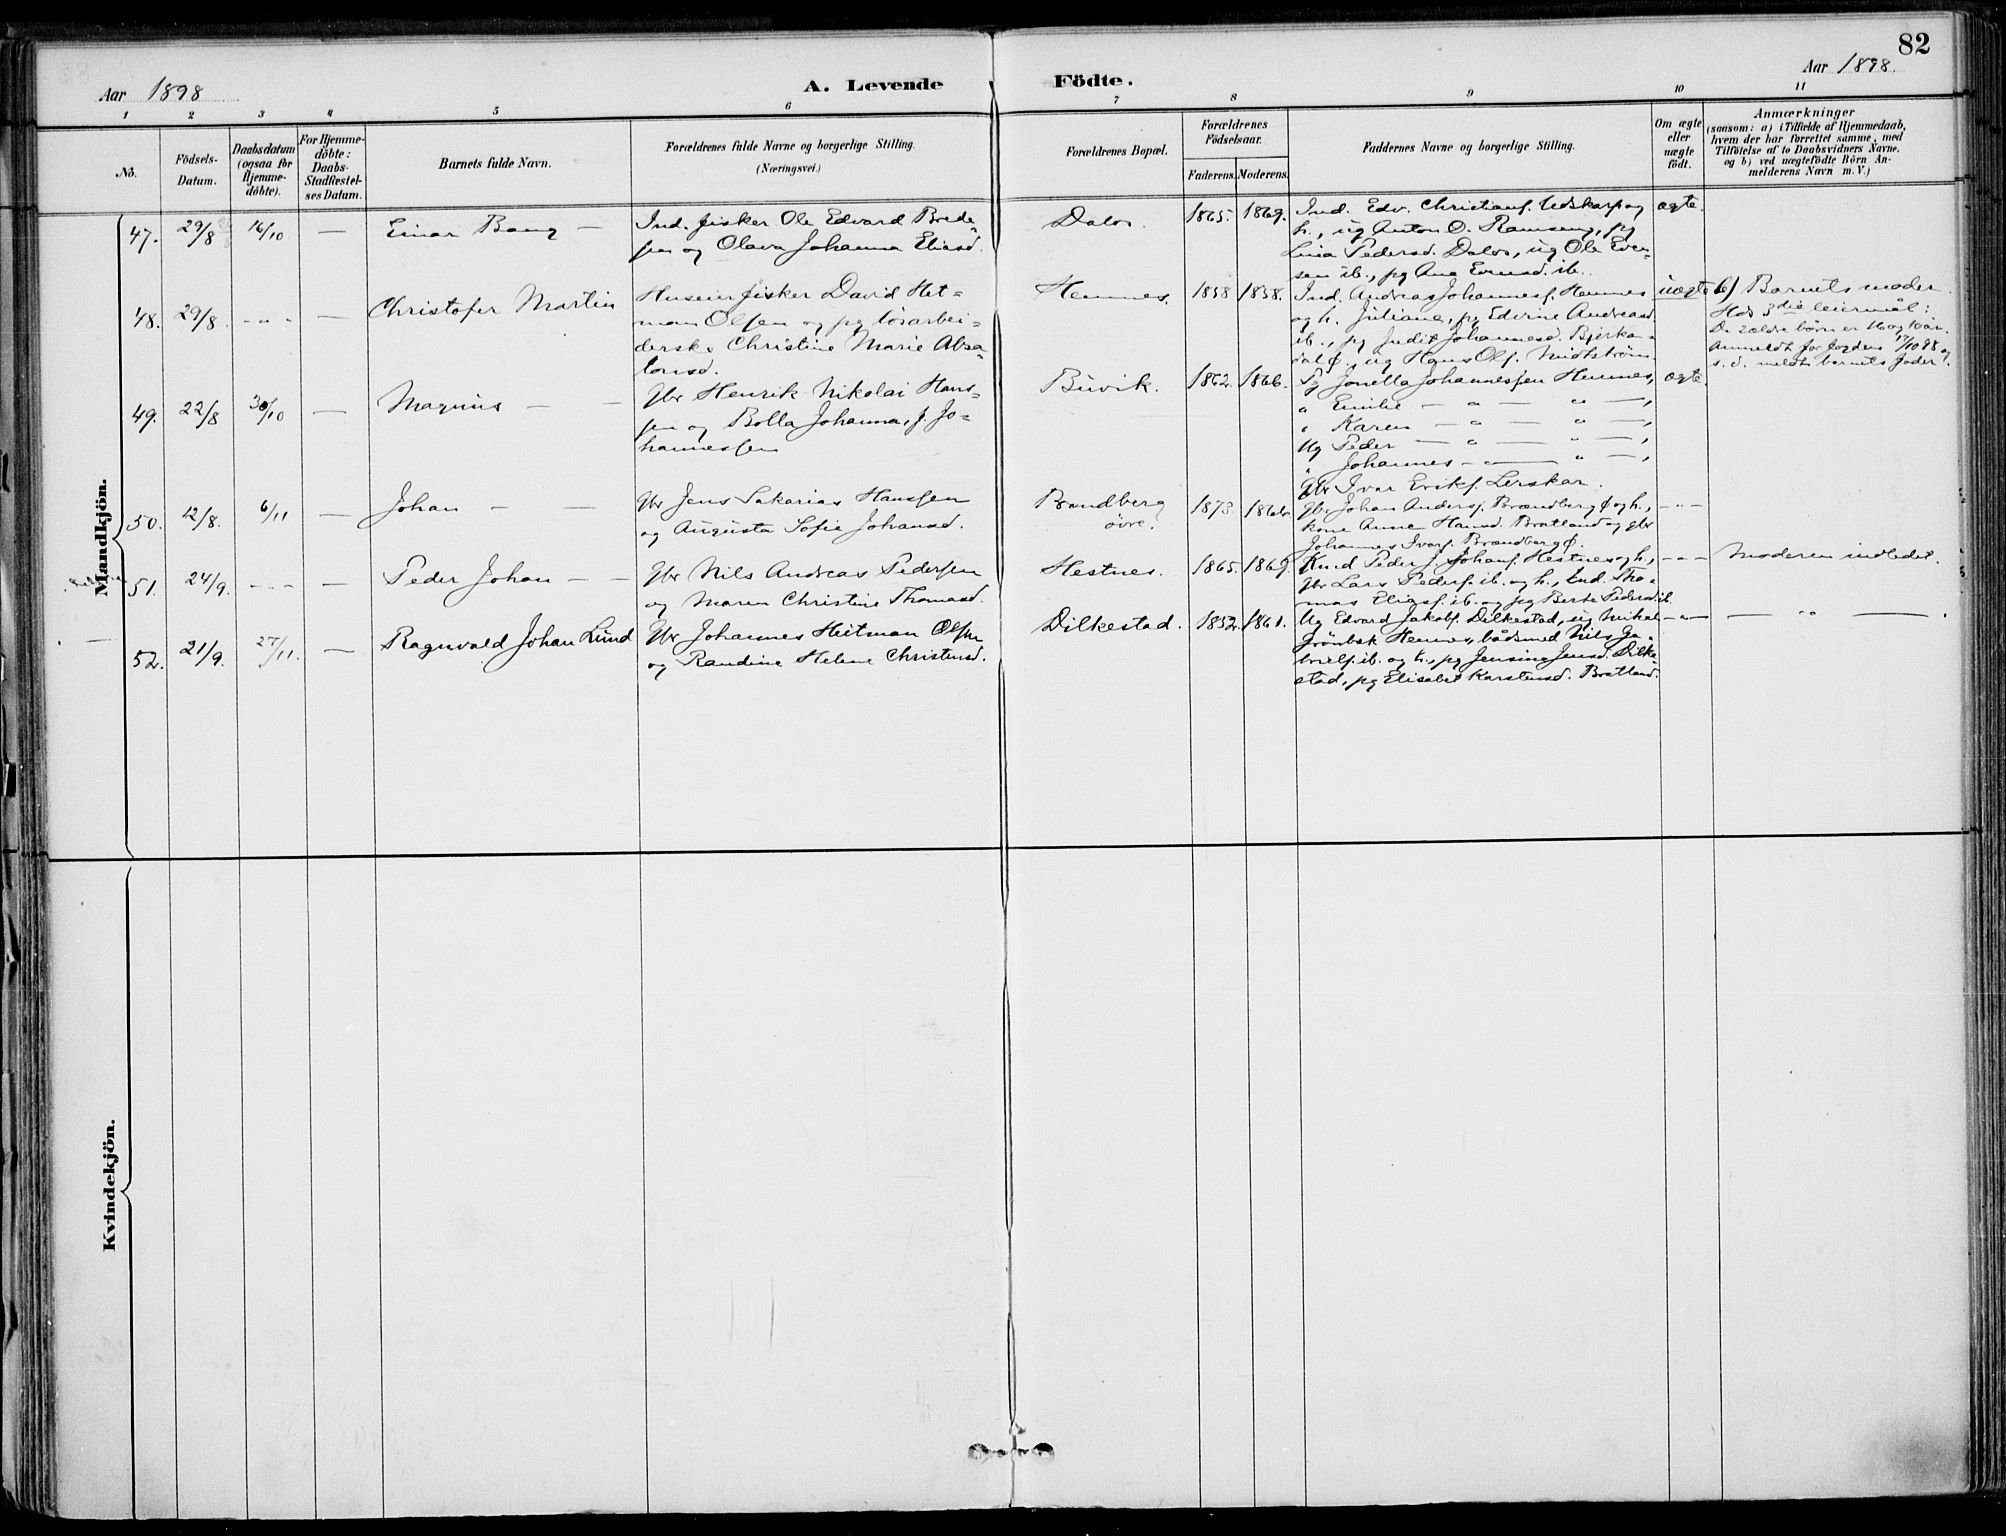 82
Aar 1898
A. Levende Födte.
Aar 1898.
1 2 3 4 5 6 7 8 9 10 11
No.
Födsels-
Datum.
Daabsdatum
(ogsaa for
Hjemme-
döbte).
For Hjemme-
döbte:
Daabs-
Stadfæstel-
ses Datum.
Barnets fulde Navn.
Forældrenes fulde Navne og borgerlige Stilling.
(Næringsvei.)
Forældrenes Bopæl.
Forældrenes
Födselsaar.
Faderens. Moderens.
Faddernes Navne og borgerlige Stilling.
Om ægte
eller
uægte
födt.
Anmærkninger
(saasom: a) i Tilfælde af Hjemmedaab,
hvem der har forrettet samme, med
Tilföielse af to Daabsvidners Navne,
og b) ved uægtefödte Börn An-
melderens Navn m. V.)
Mandkjön.
47. 29/8 16/10 — Einar Bang —
Ind. fisker Ole Edvard Brede-
sen og Olava Johanna Eliasd.
Dalos. 1865. 1869.
Ind. Edv. Christianf. Udskarp og
h., ug Anton O. Ramseng, pg
Lina Pedersd. Dalos, ug Ole Even-
sen ib., pg Ana Evensd. ib.
ægte.
48. 29/8. - „ - — Christofer Martin
Huseier fisker David Het-
man Olsen og pg løsarbei-
derske Christine Marie Absa-
lonsd.
Hemnes. 1858 1858.
Ind. Andreas Johannesf. Hemnes
og h. Juliane, pg Edvine Andreasd.
ib., pg Judit Johannesd. Bjerka-
dal Ø., ug Hans Olf. Midtstrøm.
uægte
b) Barnets moder.
Hds 3die leiermål:
De 2 ældre børn er 16 og 10 år.
Anmeldt for fogden 17/10 98 og
s. d. meldt barnets fader.
49. 22/8 30/10 — Magnus — —
Gbr Henrik Nikolai Hans-
sen og Bolla Johanna, f. Jo-
hannessen
Buvik. 1862. 1866.
Pg Jonetta Johannessen Hemnes,
„ Emilie — „ — „ —,
„ Karen — „ — „ —,
Ug Peder — „ — „ —,
„ Johannes — „ — „ —,
Gbr Ivar Erikf. Lerskar.
ægte.
50. 12/8. 6/11 — Johan — —
Gbr Jens Sakarias Hanssen
og Augusta Sofie Johansd.
Brændberg
övre. 1873 1866
Gbr Johan Andersf. Brændberg Ø og h.,
kone Anne Hansd. Bratland og gbr
Johannes Ivarf. Brændberg Ø.
— „ —
51. 24/9. - „ - — Peder Johan — —
Gbr Nils Andreas Pedersen
og Maren Christine Thomasd.
Hestnes. 1865. 1869.
Knud Peder J. Johanf. Hestnes og h.,
gbr Lars Pedersf. ib. og h., Ind. Tho-
mas Eliasf. ib. og pg Berte Pedersd. ib.
— „ —
Moderen indledet.
52. 21/9. 27/11. — Ragnvald Johan Lund
Gbr Johannes Heitman Olsen
og Randine Helene Christensd.
Dilkestad. 1852. 1861.
Ug Edvard Jakobf. Dilkestad, ug Mikal
Grönbek Hemnes, bådsmd Nils Ga-
brielf. ib. og h., pg Jensine Jensd. Dilke-
stad, pg Elisabet Karstensd. Bratland.
— „ —
— „ — .
Kvindekjön.